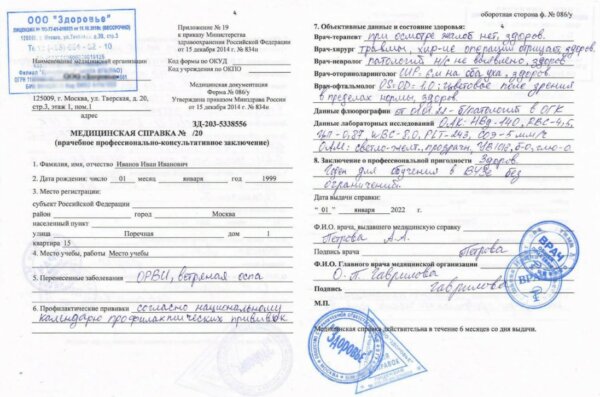 4
ООО "Здоровье"
125009, г. Москва, ул. Тверская, д. 20,
стр. 3, этаж 1, пом.1
Наименование медицинской организации
125009, г. Москва, ул. Тверская, д. 20,
стр.3, этаж 1, пом.1
адрес
Приложение № 19
к приказу Министерства
здравоохранения Российской Федерации
от 15 декабря 2014 г. № 834н
Код формы по ОКУД
Код учреждения по ОКПО
Медицинская документация
Форма № 086/у
Утверждена приказом Минздрава России
от 15 декабря 2014 г. № 834н
ЗД-203-5338556
МЕДИЦИНСКАЯ СПРАВКА № /20
(врачебное профессионально-консультативное заключение)
1. Фамилия, имя, отчество Иванов Иван Иванович
2. Дата рождения: число 01 месяц января год 1999
3. Место регистрации:
субъект Российской Федерации
район город Москва
населенный пункт
улица Поречная дом 1
квартира 15
4. Место учебы, работы Место учебы
5. Перенесенные заболевания ОРВИ, ветряная оспа
6. Профилактические прививки согласно национальному
календарю профилактических прививок
4
оборотная сторона ф. № 086/у
7. Объективные данные и состояние здоровья:
Врач-терапевт при осмотре жалоб нет, здоров.
Врач-хирург травмы, хир-ие операции отрицает, здоров.
Врач-невролог патологий Н/С не выявлено, здоров
Врач-оториноларинголог ШР-6м на оба уха, здоров.
Врач-офтальмолог OS=OD=1.0; цветовое поле зрения
в пределах нормы, здоров.
Данные флюорографии от Б/патологий в ОГК
Данные лабораторных исследований ОАК-HBg-140, RBC-4,5,
цп-0,87, WBC-5.0, PLT-243, СОЭ-5 мм/ч
ОАМ: светло-желт., прозрачн,
8. Заключение о профессиональной пригодности Здоров.
Годен для обучения в ВУЗе без
ограничений.
Дата выдачи справки:
"01" января 2022 г.
Ф.И.О. врача, выдавшего справку
Петрова А.А.
Подпись Петрова
Ф.И.О. Главного врача медицинской организации
О.П. Гаврилова
Подпись Гаврилова
М.П.
Медицинская справка действительна в течение 6 месяцев со дня выдачи.
ВРАЧ
ВРАЧ
"Здоровье"
ДЛЯ
СПРАВОК